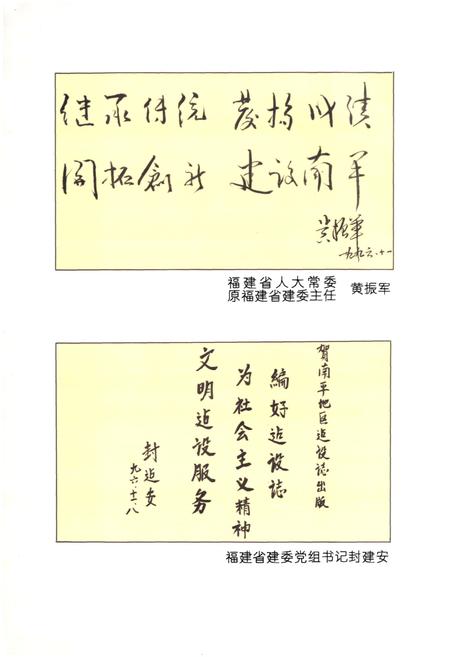 继承传统 发扬成绩
开拓创新 建设南平
黄振军
一九九六.十一
福建省人大常委
原福建省建委主任 黄振军
贺南平地区建设志出版
编好建设志
为社会主义精神
文明建设服务
封建安
九六.十一.八
福建省建委党组书记封建安